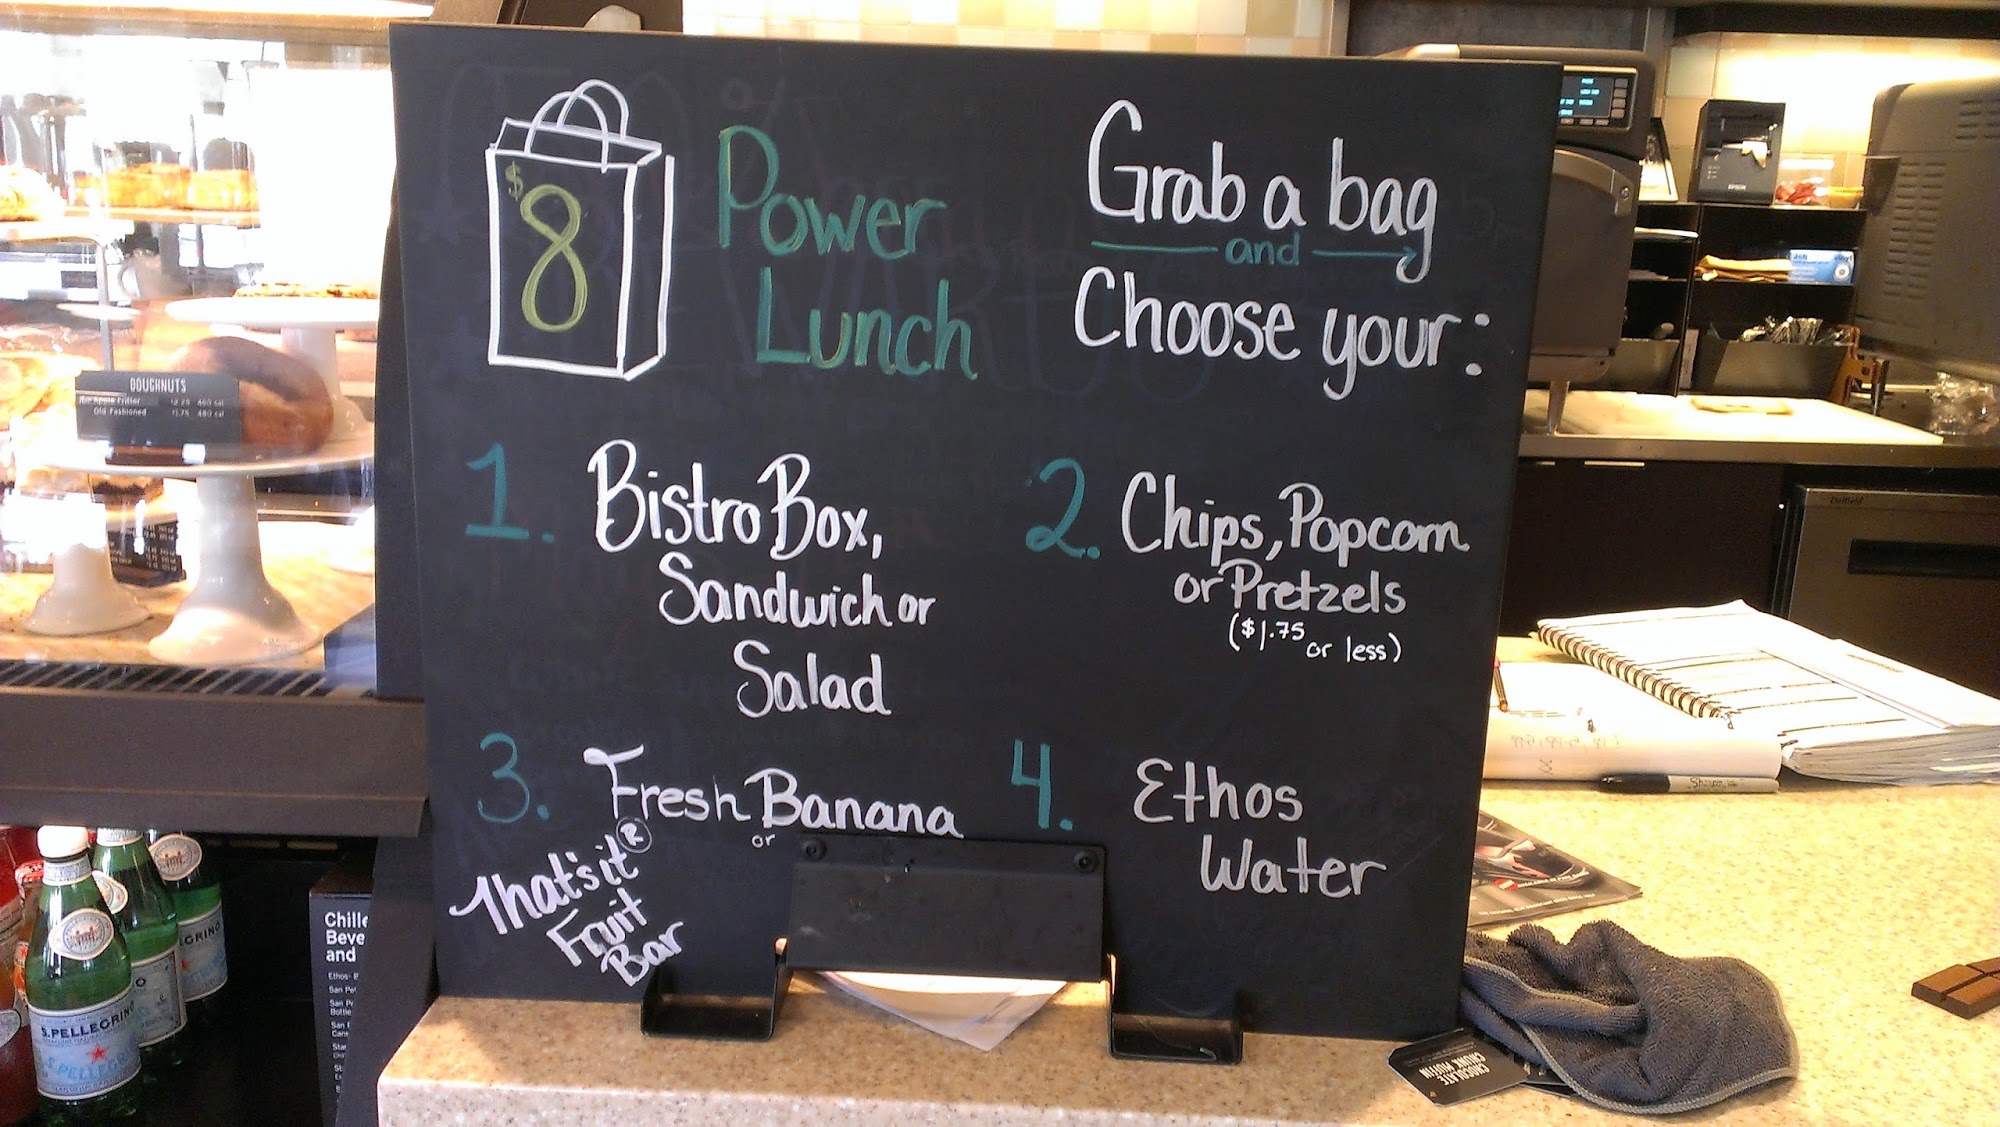 $8
Power
Lunch
Grab a bag
and
Choose your:
1. Bistro Box,
Sandwich or
Salad
2. Chips, Popcorn
or Pretzels
($1.75 or less)
3. Fresh Banana
or
That's it®
Fruit
Bar
4. Ethos
Water
DOUGHNUTS
Apple Fritter $2.25 460 cal
Old-Fashioned $1.75 480 cal
S.PELLEGRINO
S.PELLEGRINO
Chille
Beve
and
EPSON
Job
Sharpie
CHOCOLATE
CHUNK MUFFIN